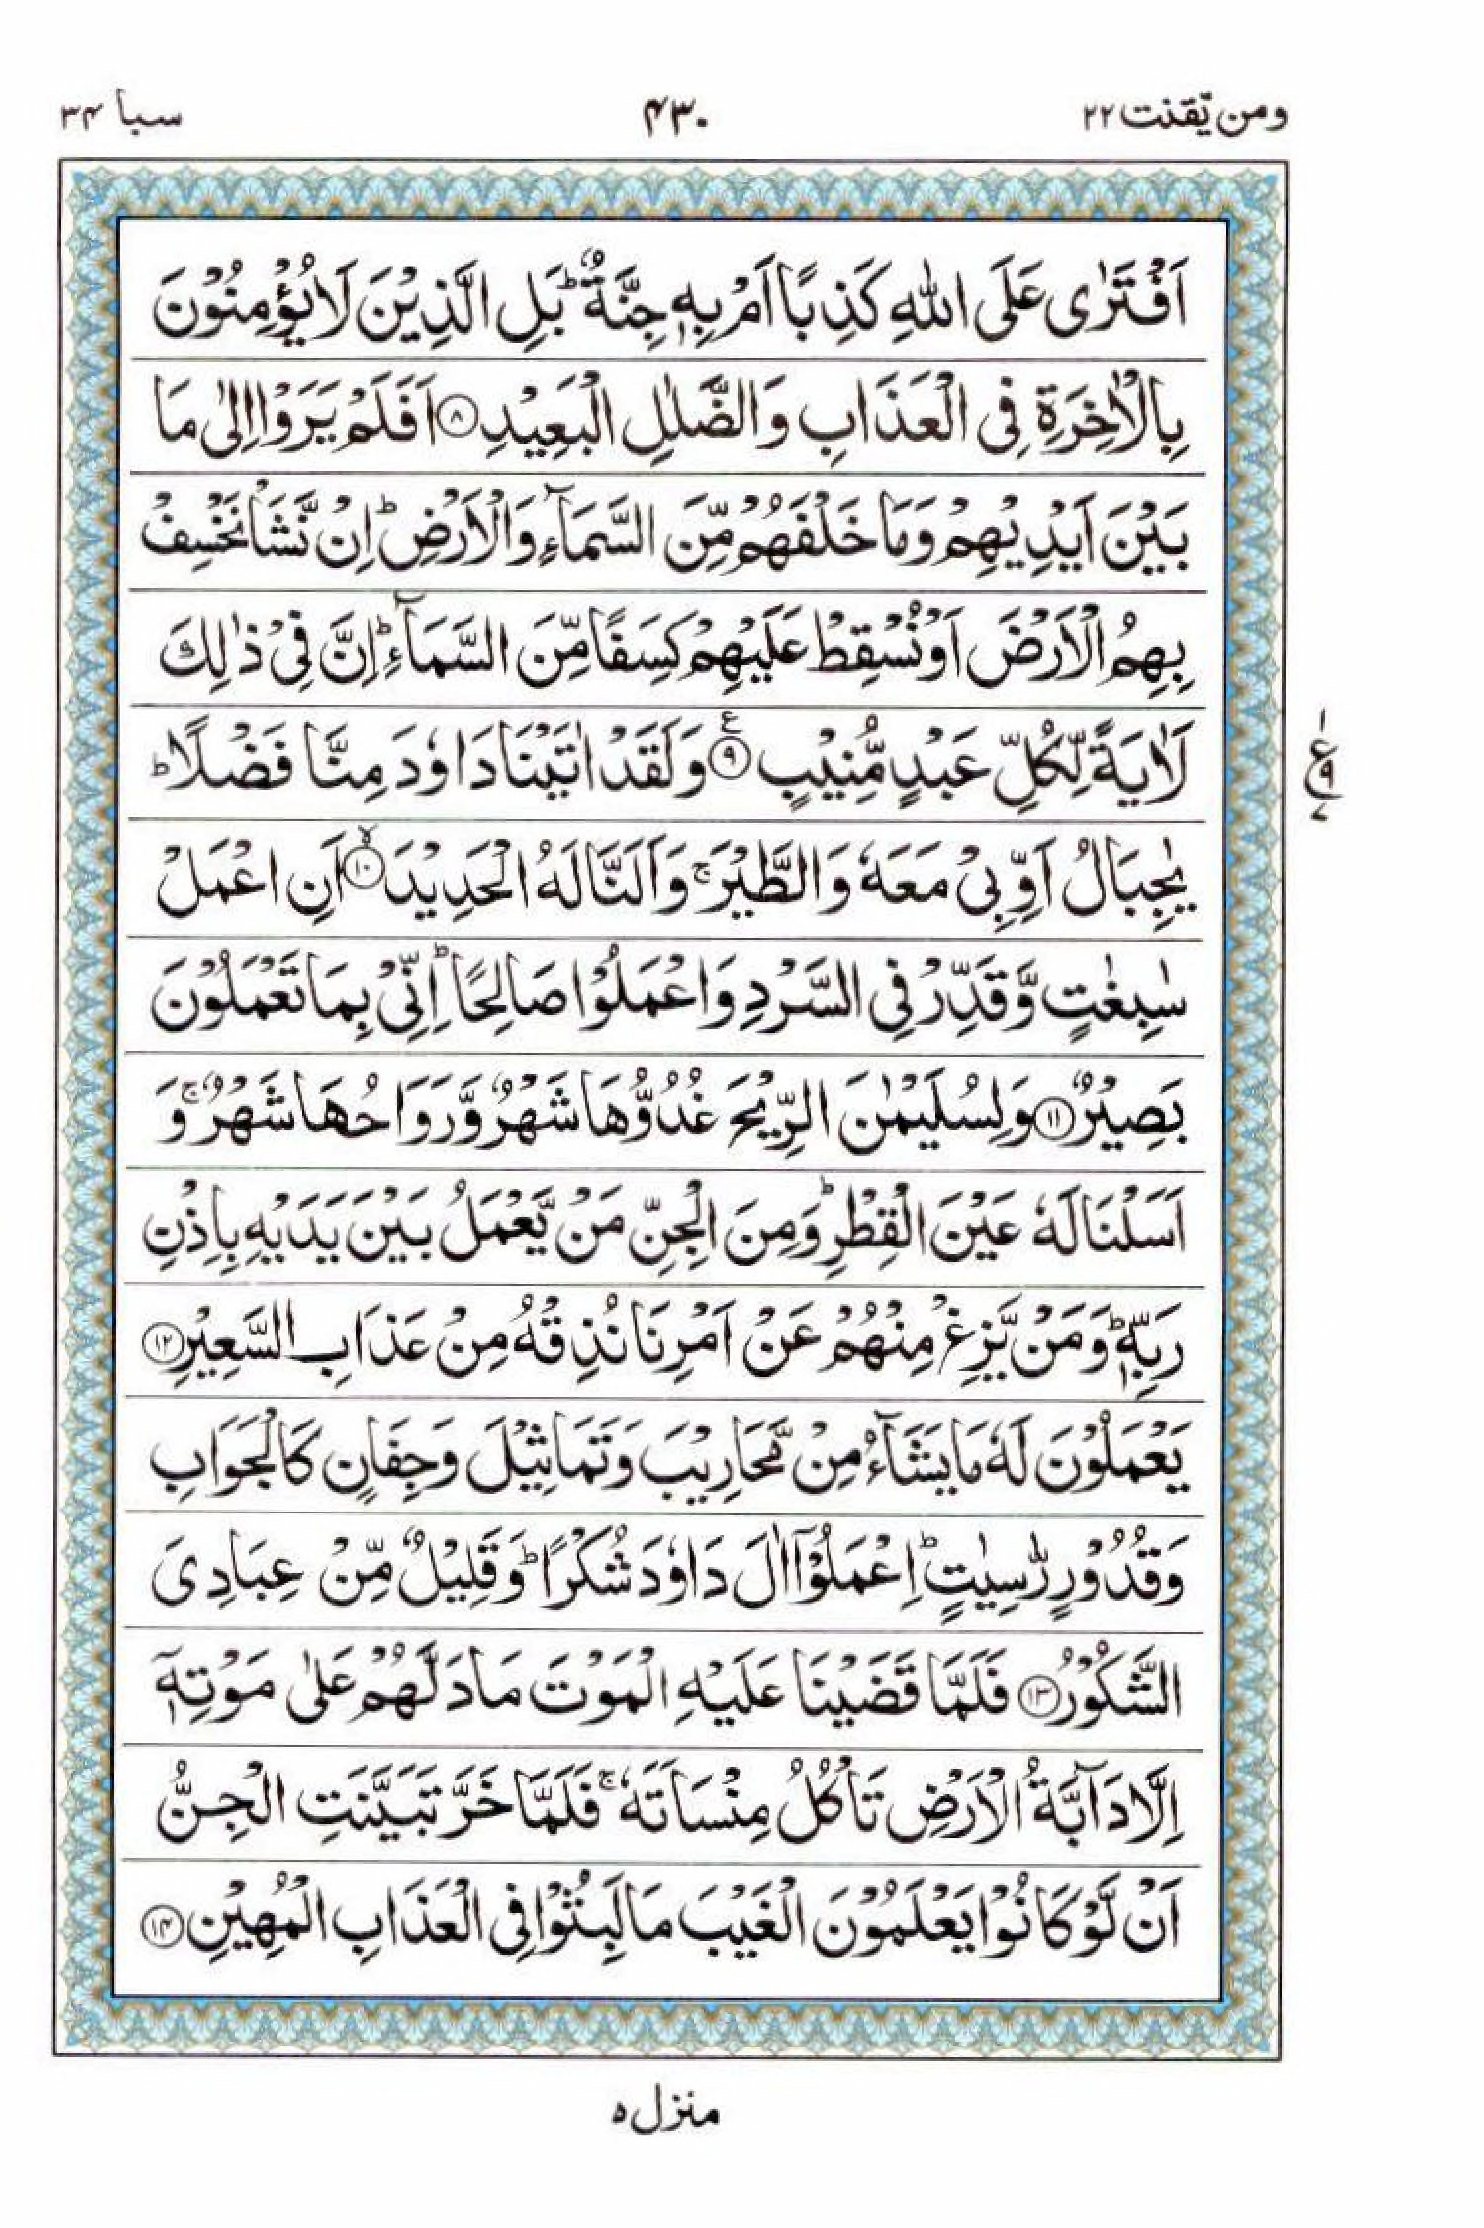 ومن یّقنت ۲۲
۴۳۰
سبا ۳۴
اَفْتَرٰی عَلَی اللّٰهِ كَذِبًا اَمْ بِهٖ جِنَّةٌ ؕ بَلِ الَّذِیْنَ لَا یُؤْمِنُوْنَ
بِالْاٰخِرَةِ فِی الْعَذَابِ وَالضَّلٰلِ الْبَعِیْدِ ۝۸ اَفَلَمْ یَرَوْا اِلٰی مَا
بَیْنَ اَیْدِیْهِمْ وَمَا خَلْفَهُمْ مِّنَ السَّمَآءِ وَالْاَرْضِ ؕ اِنْ نَّشَاْ نَخْسِفْ
بِهِمُ الْاَرْضَ اَوْ نُسْقِطْ عَلَیْهِمْ كِسَفًا مِّنَ السَّمَآءِ ؕ اِنَّ فِیْ ذٰلِكَ
لَاٰیَةً لِّكُلِّ عَبْدٍ مُّنِیْبٍ ۝۹ ع وَلَقَدْ اٰتَیْنَا دَاوٗدَ مِنَّا فَضْلًا ؕ
یٰجِبَالُ اَوِّبِیْ مَعَهٗ وَالطَّیْرَ ۚ وَاَلَنَّا لَهُ الْحَدِیْدَ ۝۱۰ ۙ اَنِ اعْمَلْ
سٰبِغٰتٍ وَّقَدِّرْ فِی السَّرْدِ وَاعْمَلُوْا صَالِحًا ؕ اِنِّیْ بِمَا تَعْمَلُوْنَ
بَصِیْرٌ ۝۱۱ وَلِسُلَیْمٰنَ الرِّیْحَ غُدُوُّهَا شَهْرٌ وَّرَوَاحُهَا شَهْرٌ ۚ وَ
اَسَلْنَا لَهٗ عَیْنَ الْقِطْرِ ؕ وَمِنَ الْجِنِّ مَنْ یَّعْمَلُ بَیْنَ یَدَیْهِ بِاِذْنِ
رَبِّهٖ ؕ وَمَنْ یَّزِغْ مِنْهُمْ عَنْ اَمْرِنَا نُذِقْهُ مِنْ عَذَابِ السَّعِیْرِ ۝۱۲
یَعْمَلُوْنَ لَهٗ مَا یَشَآءُ مِنْ مَّحَارِیْبَ وَتَمَاثِیْلَ وَجِفَانٍ كَالْجَوَابِ
وَقُدُوْرٍ رّٰسِیٰتٍ ؕ اِعْمَلُوْۤا اٰلَ دَاوٗدَ شُكْرًا ؕ وَقَلِیْلٌ مِّنْ عِبَادِیَ
الشَّكُوْرُ ۝۱۳ فَلَمَّا قَضَیْنَا عَلَیْهِ الْمَوْتَ مَا دَلَّهُمْ عَلٰی مَوْتِهٖۤ
اِلَّا دَآبَّةُ الْاَرْضِ تَاْكُلُ مِنْسَاَتَهٗ ۚ فَلَمَّا خَرَّ تَبَیَّنَتِ الْجِنُّ
اَنْ لَّوْ كَانُوْا یَعْلَمُوْنَ الْغَیْبَ مَا لَبِثُوْا فِی الْعَذَابِ الْمُهِیْنِ ۝۱۴
۱
ع ۹
۷
منزل ۵